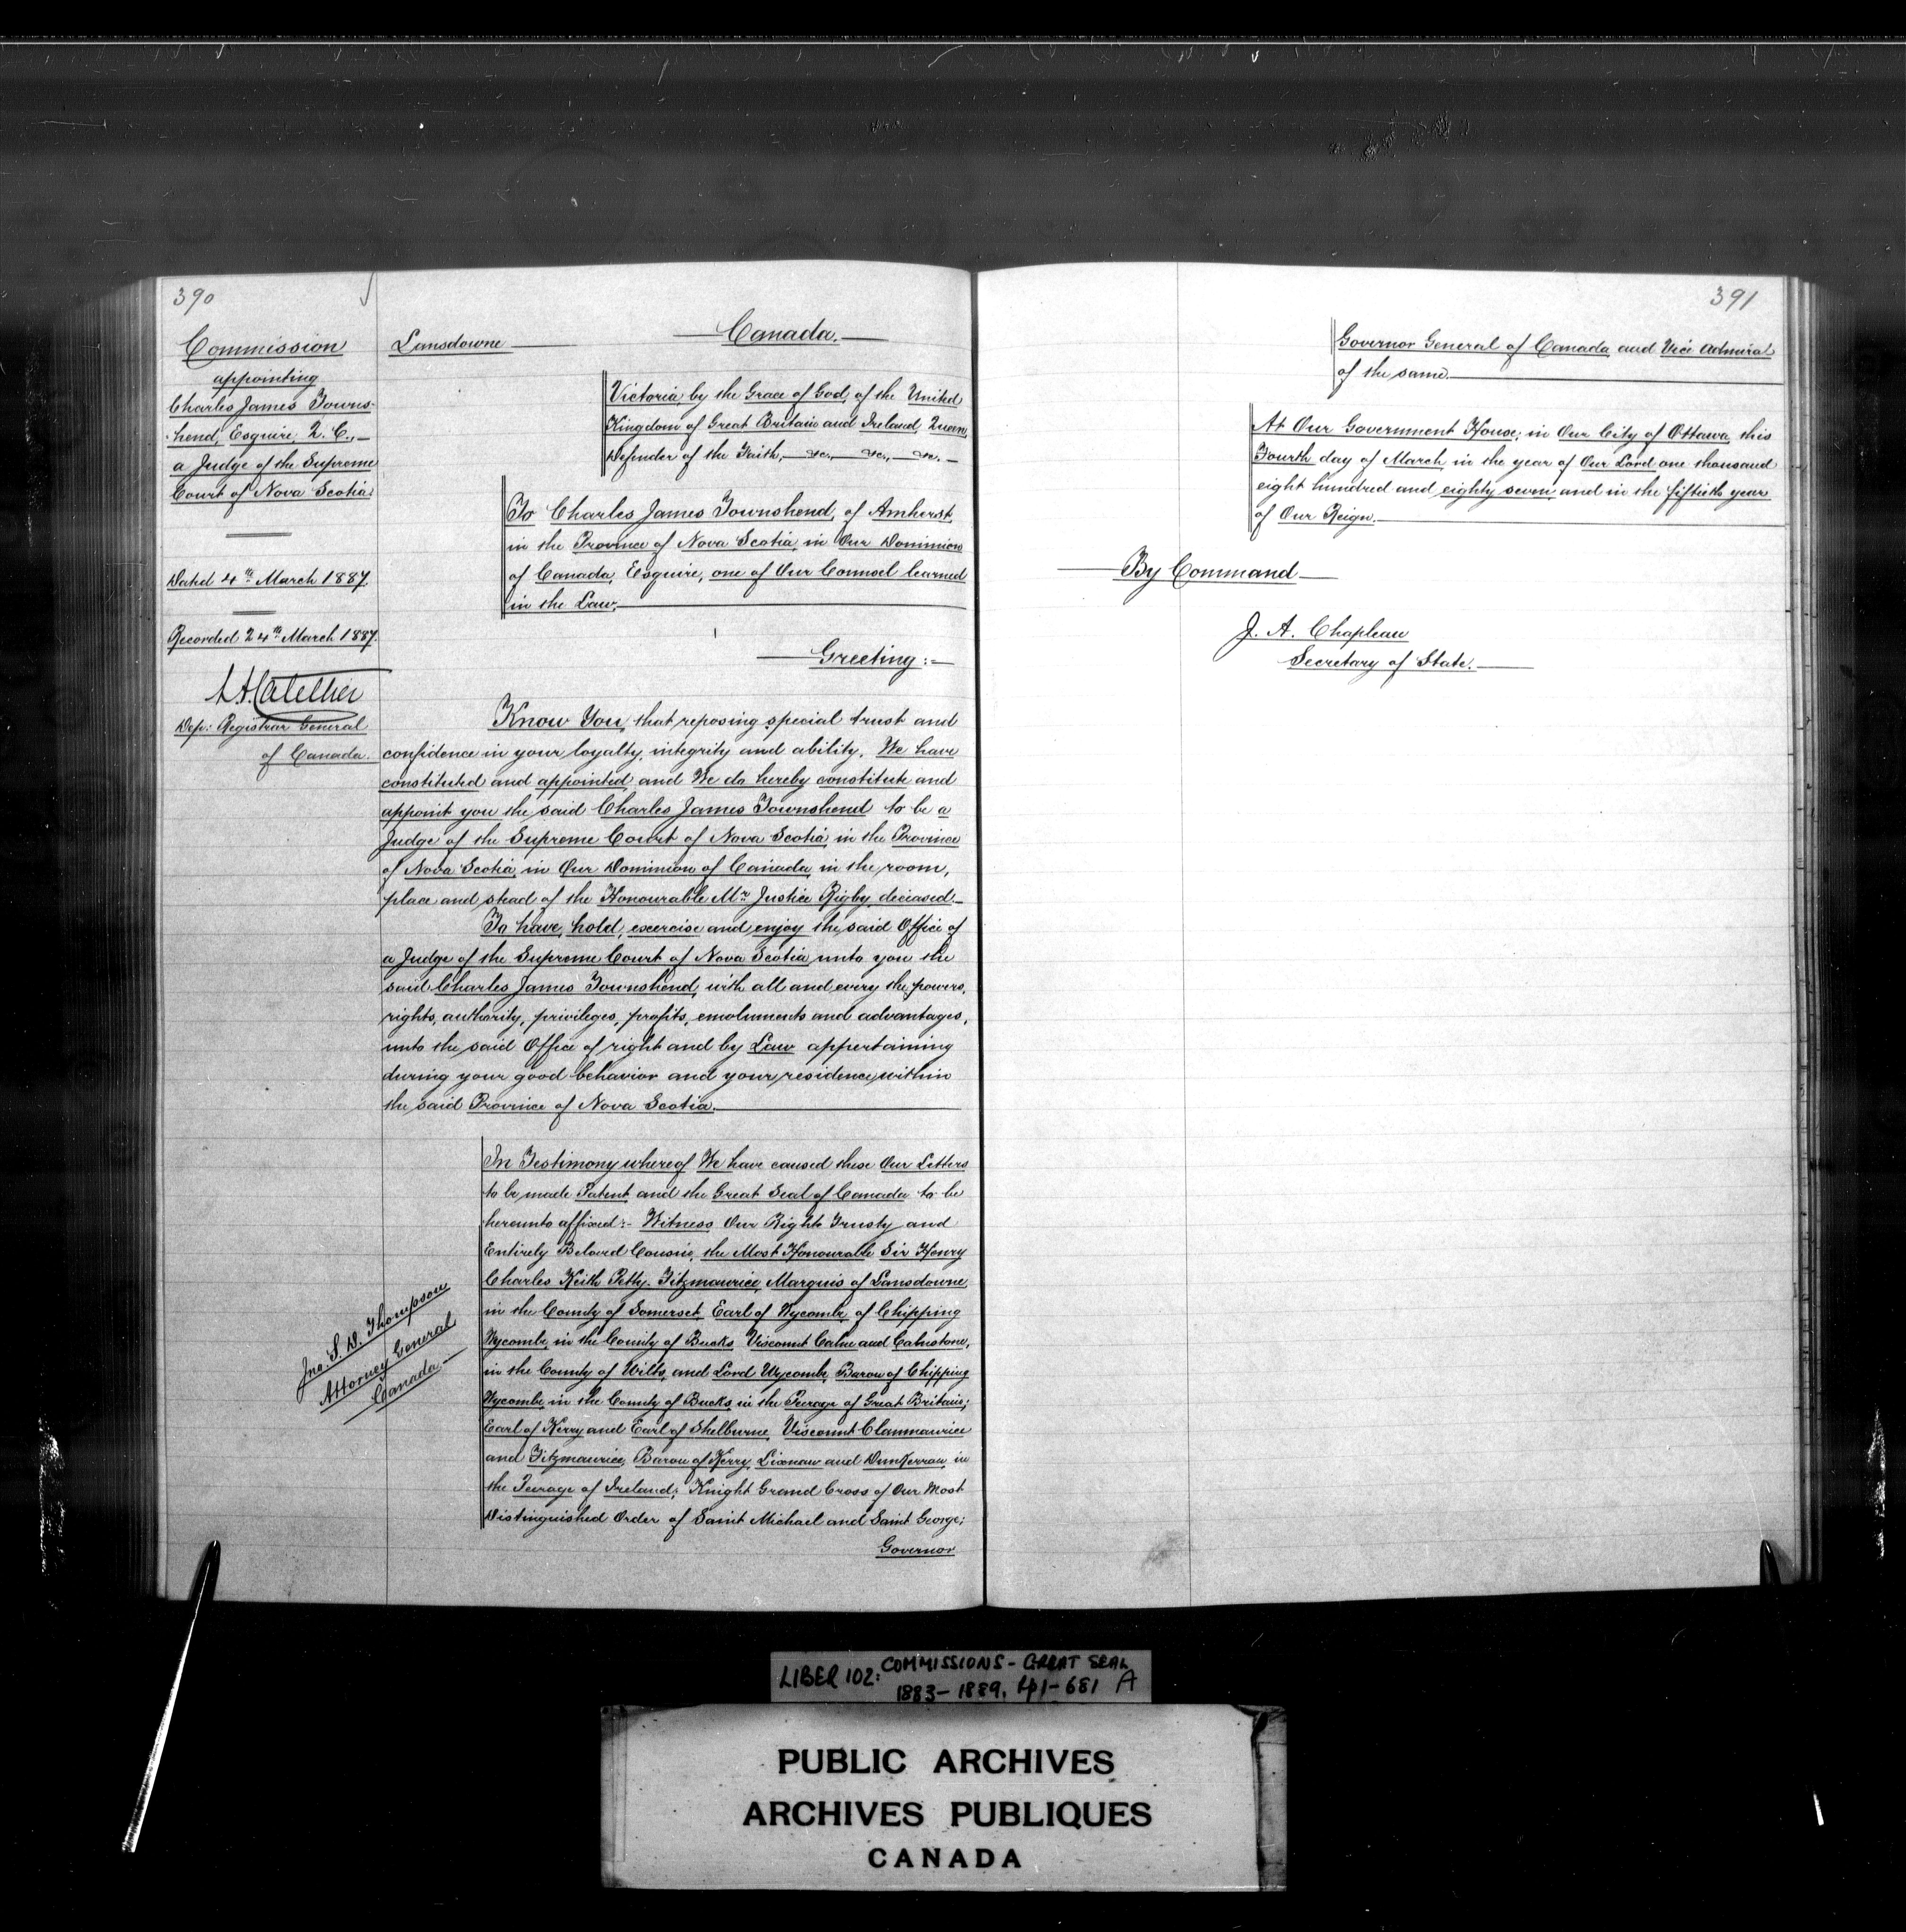 390
Commission
appointing
Charles James Towns-
hend, Esquire, Q. C.,
a Judge of the Supreme
Court of Nova Scotia.
Dated 4th March 1887.
Recorded 24th March 1887.
Dep: Registrar General
of Canada.
Lansdowne
Canada.
Victoria by the Grace of God, of the United
Kingdom of Great Britain and Ireland, Queen,
Defender of the Faith, &c., &c., &c.
To Charles James Townshend, of Amherst,
in the Province of Nova Scotia, in Our Dominion
of Canada, Esquire, one of Our Counsel learned
in the Law,
Greeting:-
Know You, that reposing special trust and
confidence in your loyalty, integrity and ability, We have
constituted and appointed, and We do hereby constitute and
appoint you the said Charles James Townshend to be a
Judge of the Supreme Court of Nova Scotia, in the Province
of Nova Scotia, in Our Dominion of Canada, in the room,
place and stead of the Honourable Mr Justice Rigby, deceased.
To have, hold, exercise and enjoy the said Office of
a Judge of the Supreme Court of Nova Scotia unto you the
said Charles James Townshend, with all and every the powers,
rights, authority, privileges, profits, emoluments and advantages,
unto the said Office of right and by Law appertaining
during your good behavior and your residence within
the said Province of Nova Scotia.
In Testimony whereof We have caused these Our Letters
to be made Patent, and the Great Seal of Canada to be
hereunto affixed:- Witness Our Right Trusty and
Entirely Beloved Cousin, the Most Honourable Sir Henry
Charles Keith Petty-Fitzmaurice, Marquis of Lansdowne,
in the County of Somerset, Earl of Wycombe, of Chipping
Wycombe, in the County of Bucks, Viscount Calne and Calnstone,
in the County of Wilts, and Lord Wycombe, Baron of Chipping
Wycombe, in the County of Bucks, in the Peerage of Great Britain;
Earl of Kerry and Earl of Shelburne, Viscount Clanmaurice
and Fitzmaurice, Baron of Kerry, Lixnaw and Dunkerron, in
the Peerage of Ireland; Knight Grand Cross of Our Most
Distinguished Order of Saint Michael and Saint George;
Governor
Jno. S. D. Thompson
Attorney General
Canada
391
Governor General of Canada and Vice Admiral
of the same.
At Our Government House, in Our City of Ottawa, this
Fourth day of March, in the year of Our Lord one thousand
eight hundred and eighty seven, and in the fiftieth year
of Our Reign.
By Command
J. A. Chapleau
Secretary of State.
LIBER 102: COMMISSIONS - GREAT SEAL
1883-1889, pp 1-681 A
PUBLIC ARCHIVES
ARCHIVES PUBLIQUES
CANADA